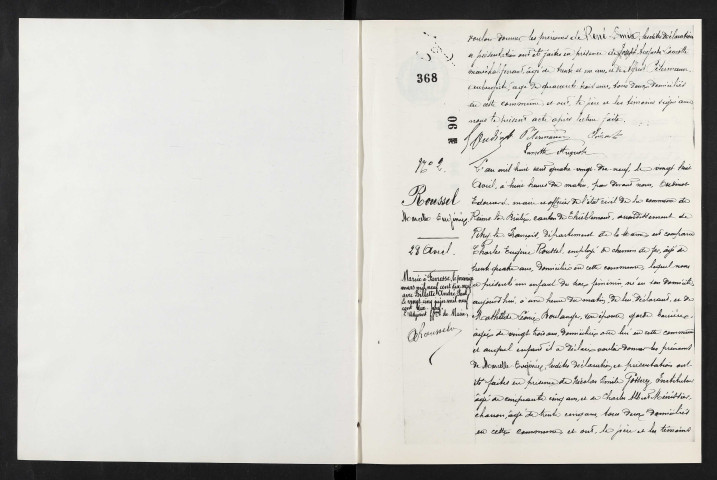 368
90
voulu donner les prénoms de René Emile, lesdites déclaration
et présentation ont été faites en présence de Joseph Auguste
maréchal ferrant, âgé de trente et un ans, et de Alfred
employé, âgé de quarante trois ans, tous deux domiciliés
en cette commune et ont le père et les témoins signé avec
nous le présent acte après lecture faite.
Auguste
N° 2
Roussel
Marcelle Eugénie
28 Avril
Mariée à le
mars mil neuf cent dix neuf
avec Gillette André Paul
le vingt cinq juin mil neuf
cent
L'an mil huit cent quatre vingt dix neuf, le vingt huit
Avril, à huit heures du matin, par devant nous,
Edouard, maire et officier de l'état civil de la commune de
Reims la Brûlée, canton de Thiéblemont, arrondissement de
Vitry le François, département de la Marne, est comparu
Charles Eugène Roussel, employé de chemin de fer, âgé de
trente quatre ans, domicilié en cette commune, lequel nous
a présenté un enfant du sexe féminin, né en son domicile
aujourd'hui, à une heure du matin, de lui déclarant, et de
Mathilde Léonie Boulanger, son épouse, garde barrière
âgée de vingt trois ans, domiciliée avec lui en cette commune
et auquel enfant il a déclaré vouloir donner les prénoms
de Marcelle Eugénie, lesdites déclaration et présentation ont
été faites en présence de Nicolas Emile, Instituteur
âgé de cinquante cinq ans, et de Charles Albert
charron, âgé de trente cinq ans, tous deux domiciliés
en cette commune et ont, le père et les témoins